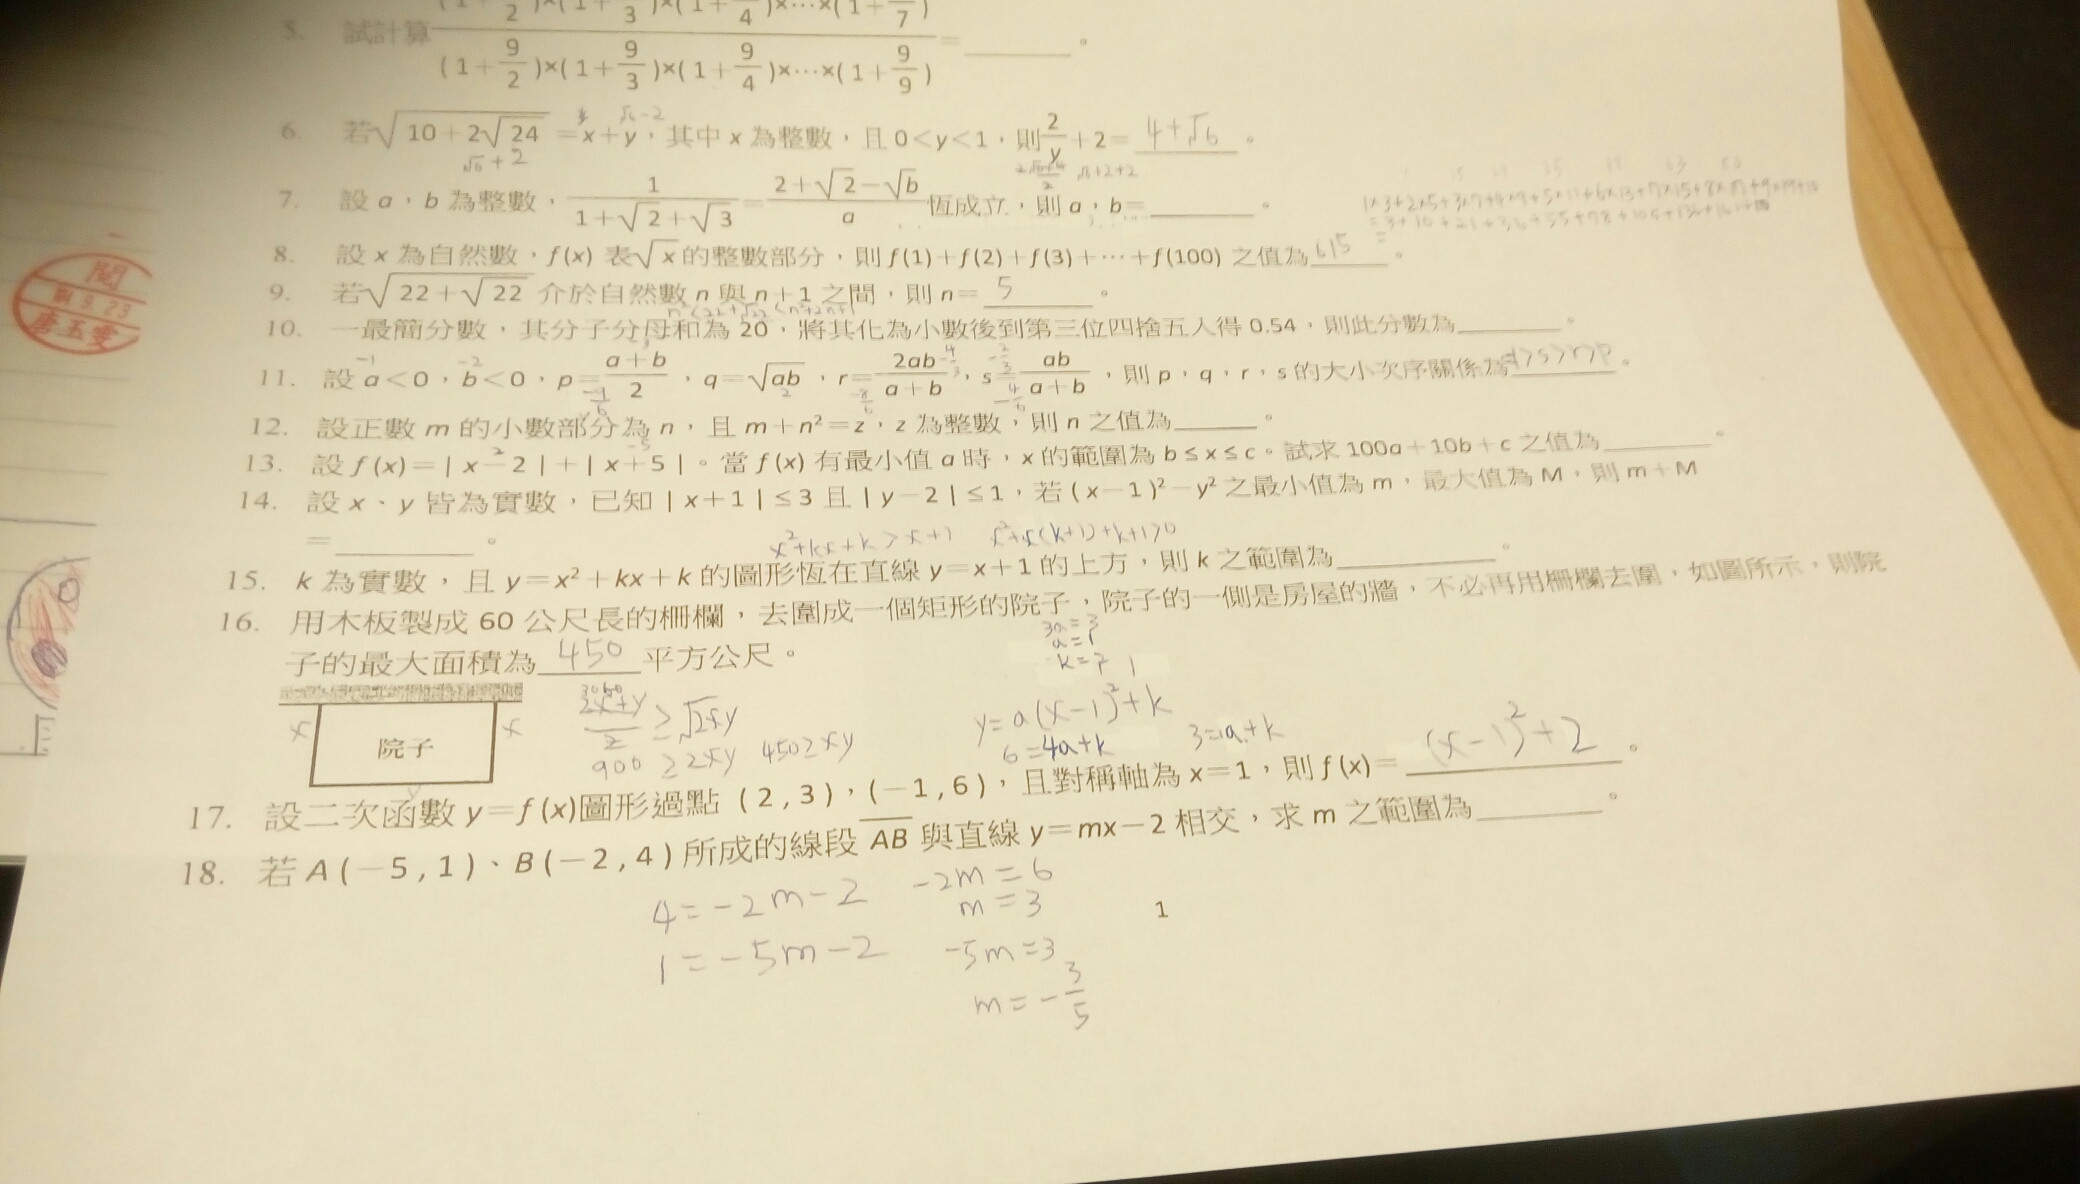 5. 試計算 (1+ /2)×(1+ /3)×(1+ /4)×⋯×(1+ /7)
(1+9/2)×(1+9/3)×(1+9/4)×⋯×(1+9/9) =
√6-2
6. 若√(10+2√24)=x+y,其中 x 為整數,且 0<y<1,則 2/y +2= 4+√6 。
√6+2
√6+2+2
7. 設 a,b 為整數,1/(1+√2+√3)=(2+√2-√b)/a 恆成立,則 a,b= 。
1×3+2×5+3×7+4×9+5×11+6×13+7×15+8×17+9×19+10
8. 設 x 為自然數,f(x) 表√x的整數部分,則 f(1)+f(2)+f(3)+⋯+f(100) 之值為 615 。
9. 若√(22+√22) 介於自然數 n 與 n+1 之間,則 n= 5 。
n²<22+√22<n²+2n+1
10. 一最簡分數,其分子分母和為 20,將其化為小數後到第三位四捨五入得 0.54,則此分數為 。
-1 -2
11. 設 a<0,b<0,p=(a+b)/2,q=√ab,r=2ab/(a+b),s=ab/(a+b),則 p,q,r,s的大小次序關係為 q>s>r>p 。
12. 設正數 m 的小數部分為 n,且 m+n²=z,z 為整數,則 n 之值為 。
2 -5
13. 設 f(x)=|x-2|+|x+5|。當 f(x) 有最小值 a 時,x 的範圍為 b≤x≤c。試求 100a+10b+c 之值為 。
14. 設 x、y 皆為實數,已知 |x+1|≤3 且 |y-2|≤1,若 (x-1)²-y² 之最小值為 m,最大值為 M,則 m+M
= 。
x²+kx+k>x+1 x²+x(k+1)+k+1>0
15. k 為實數,且 y=x²+kx+k 的圖形恆在直線 y=x+1 的上方,則 k 之範圍為 。
16. 用木板製成 60 公尺長的柵欄,去圍成一個矩形的院子,院子的一側是房屋的牆,不必再用柵欄去圍,如圖所示,則院
子的最大面積為 450 平方公尺。
3a=3
a=1
k=2
x 院子 x
y
(2x+y)/2≥√2xy
900≥2xy 450≥xy
y=a(x-1)²+k
6=4a+k 3=a+k
17. 設二次函數 y=f(x)圖形過點 (2,3),(-1,6),且對稱軸為 x=1,則 f(x)= (x-1)²+2 。
18. 若 A(-5,1)、B(-2,4) 所成的線段 AB 與直線 y=mx-2 相交,求 m 之範圍為 。
4=-2m-2 -2m=6
m=3
1=-5m-2 -5m=3
m=-3/5
1
閱
9.23